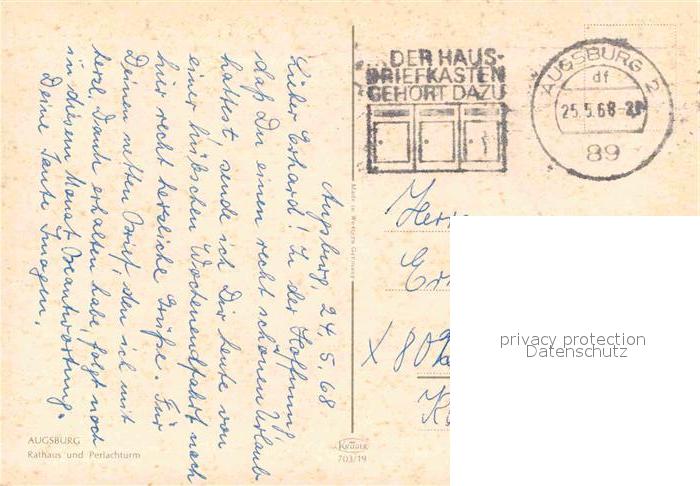 Augsburg, 24.5.68
Lieber Erhard! In der Hoffnung,
daß Du einen recht schönen Urlaub
hattest, sende ich Dir heute von
einer hübschen Wochenendfahrt nach
hier recht herzliche Grüße. Für
Deinen netten Brief, den ich mit
herzl. Dank erhalten habe, folgt noch
in diesem Monat Beantwortung.
Deine Tante Imogen.
AUGSBURG
Rathaus und Perlachturm
Made in Western Germany
KRÜGER
703/19
DER HAUS-
BRIEFKASTEN
GEHÖRT DAZU
AUGSBURG 2
df
25.5.68
89
Herrn
X 80
privacy protection
Datenschutz